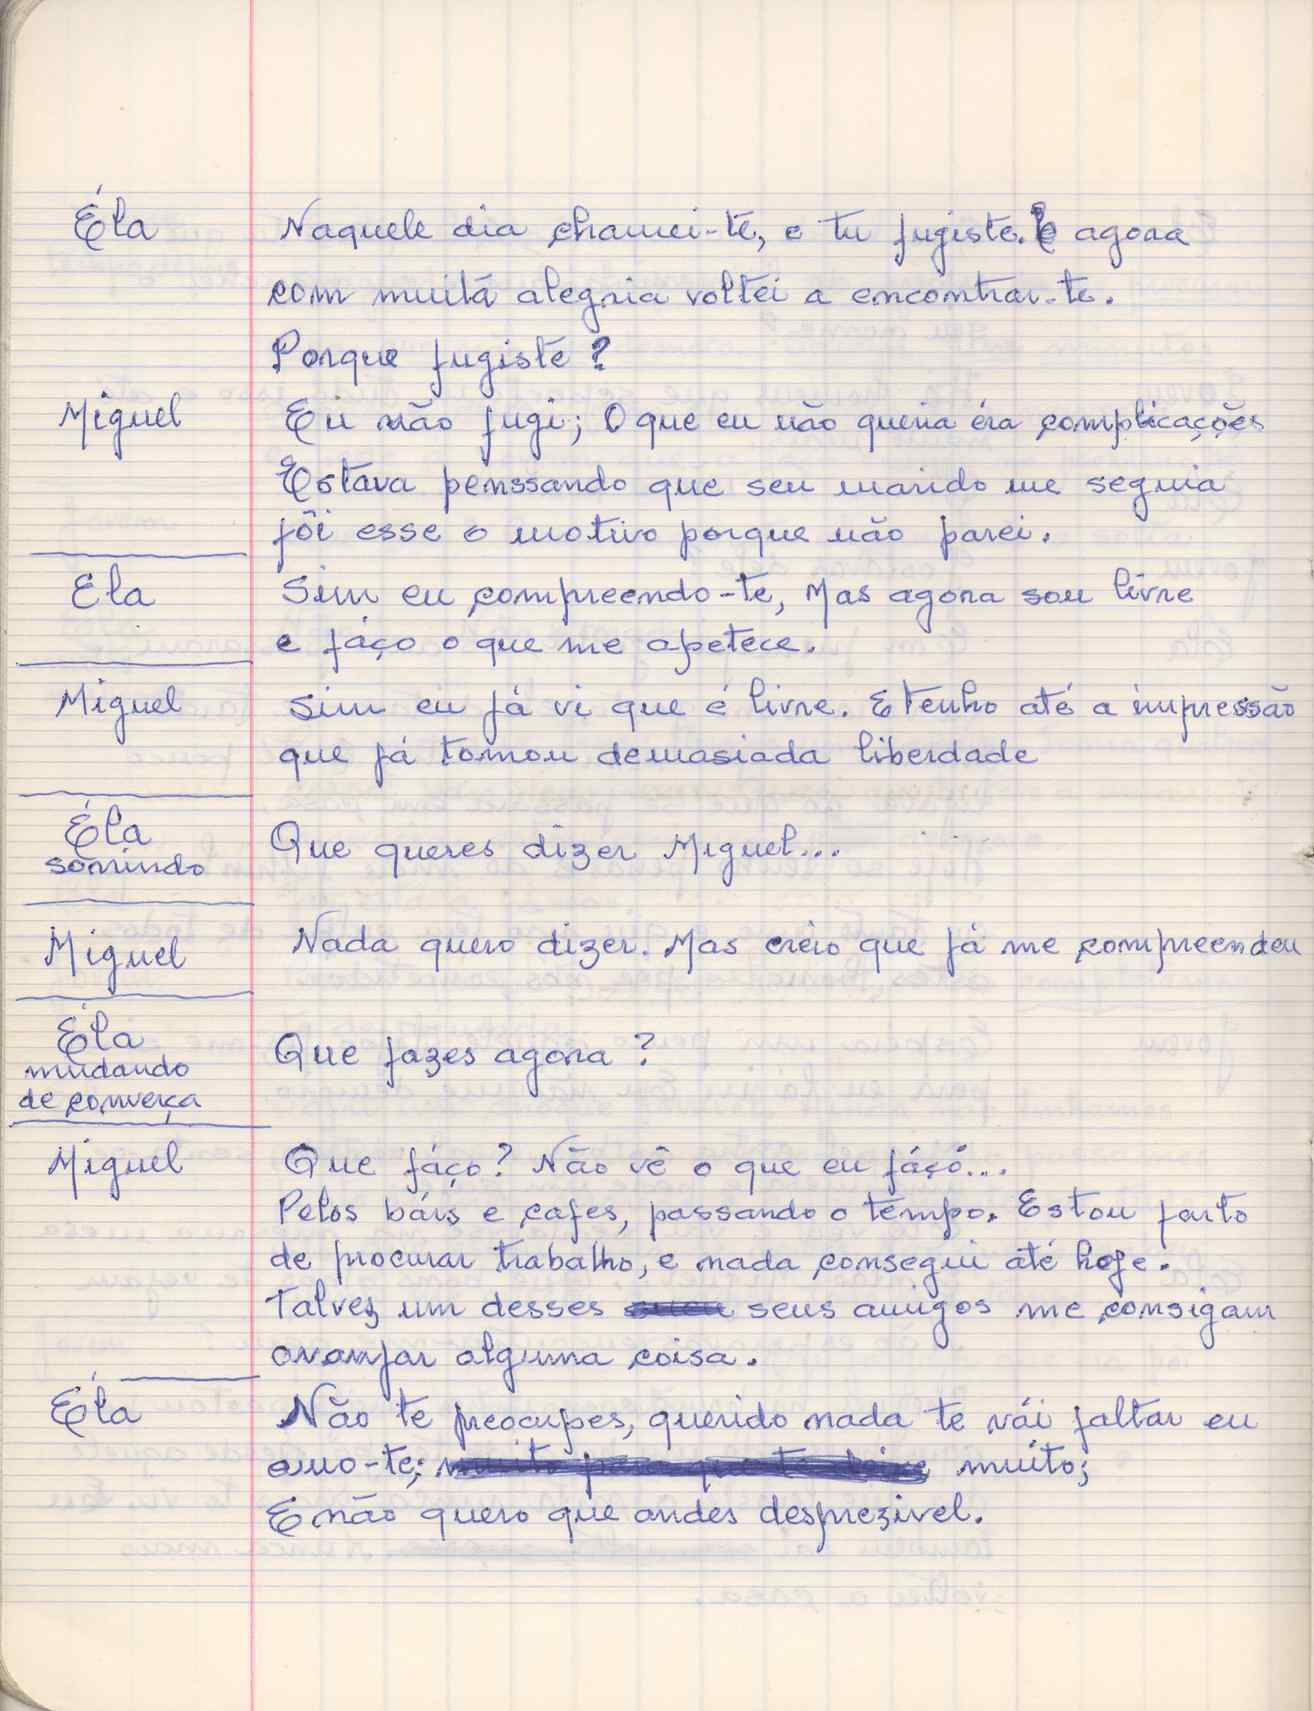 Éla Naquele dia chamei-te, e tu fugiste. E agora
com muitá alegria voltei a encontrar-te.
Porque fugiste?
Miguel Eu não fugi; O que eu não queria éra complicações
Estava penssando que seu marido me seguia
fôi esse o motivo porque não parei.
Ela Sim eu compreendo-te, Mas agora sou livre
e fáço o que me apetece.
Miguel Sim eu já vi que é livre. E tenho até a impressão
que já tomou demasiada liberdade
Éla Que queres dizer Miguel...
sorrindo
Miguel Nada quero dizer. Mas creio que já me compreendeu
Éla Que fazes agora?
mudando
de converça
Miguel Que fáço? Não vê o que eu fáço...
Pelos báis e cafes, passando o tempo. Estou farto
de procurar trabalho, e nada consegui até hoje.
Talvez um desses seus amigos me consigam
arranjar alguma coisa.
Éla Não te preocupes, querido nada te vái faltar eu
amo-te; muito;
E não quero que andes desprezivel.